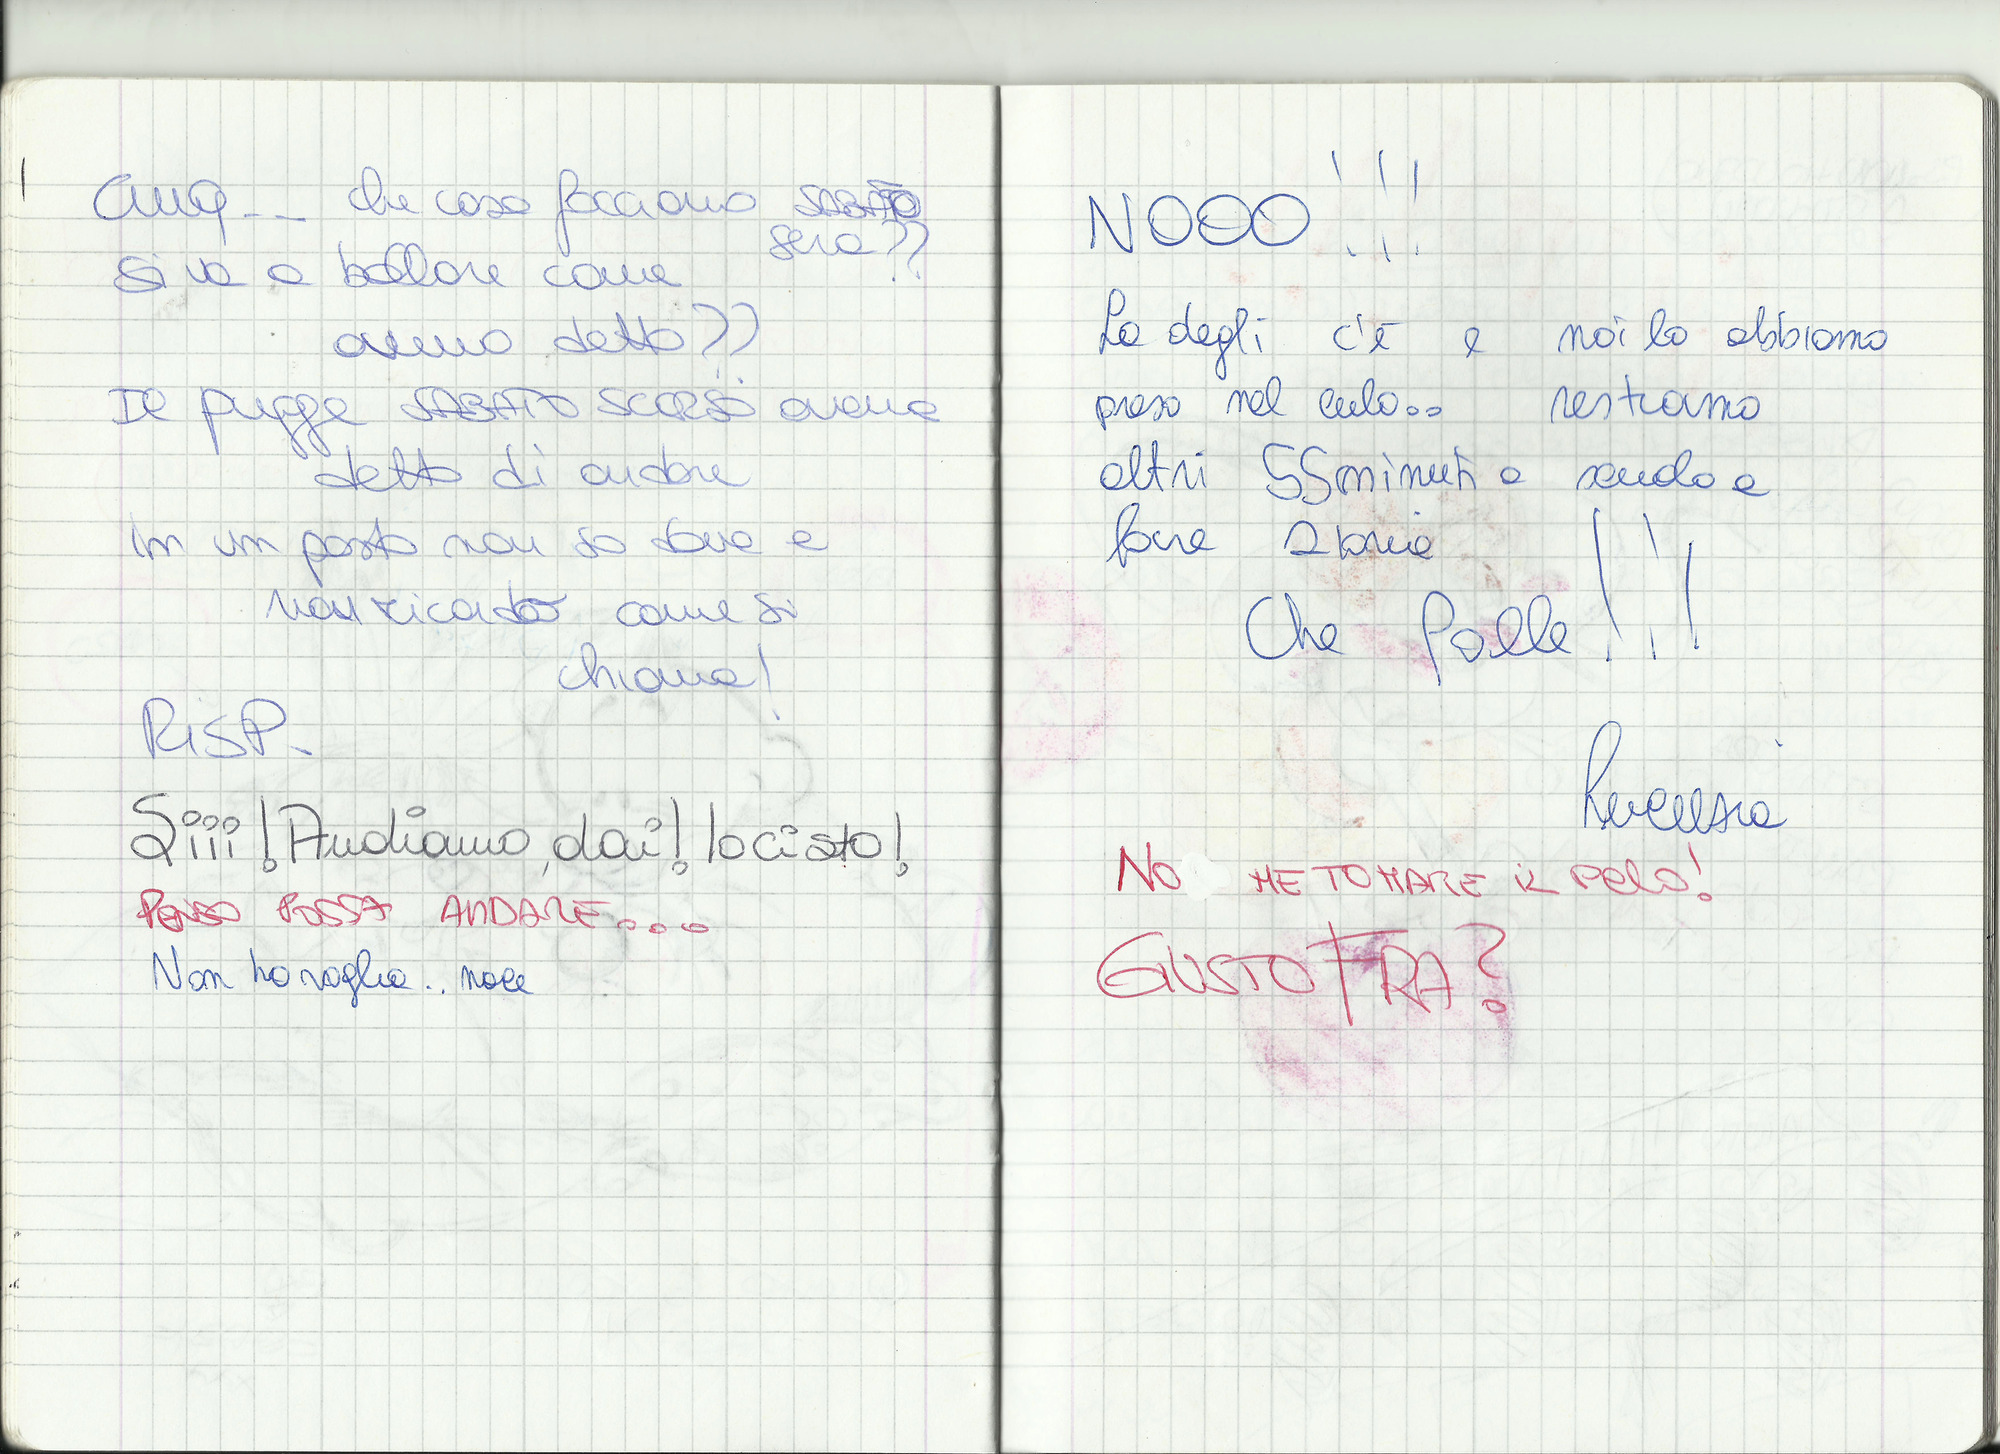 CMQ-- che cosa facciamo SABATO
sera??
Si va a ballare come
avemo detto??
De pugge SABATO SCORSO aveva
detto di andare
in un posto non so dove e
non ricordo come si
chiama!
RISP-
Siiii! Andiamo, dai! Io ci sto!
PENSO POSSA ANDARE....
Non ho voglia..
NOOO!!!
La degli c'è e noi lo abbiamo
preso nel culo.. restiamo
altri 55 minuti a scuola a
fare Storia
Che Palle!!!
Lucrezia
NO ME TOMARE IL PELO!
GIUSTO FRA?